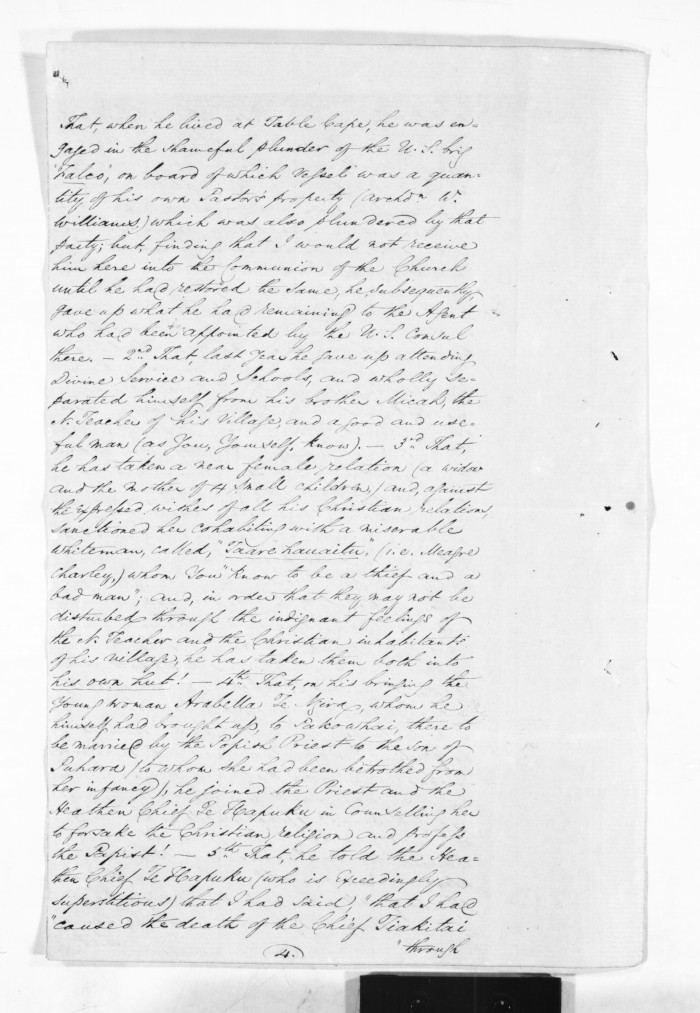 That, when he lived at Table Cape, he was en-
gaged in the shameful plunder of the U. S. brig
"Falco", on board of which vessel was a quan-
tity of his own Pastor's property (Archdn. W.
Williams,) which was also plundered by that
party; but, finding that I would not receive
him here into the Communion of the Church
until he had restored the same, he, subsequently,
gave up what he had remaining to the Agent
who had been appointed by the U. S. Consul
there. — 2nd. That, last year he gave up attending
Divine Service and Schools, and wholly se-
parated himself from his brother Micah, the
N. Teacher of his village, and a good and use-
ful man (as You, Yourself, know). — 3rd. That,
he has taken a near female relation (a widow
and the mother of 4 small children,) and, against
the expressed wishes of all his Christian relations,
sanctioned her cohabiting with a miserable
whiteman, called, "Taare hauaitu," (i.e. Meagre
Charley,) whom You "know to be a thief and a
bad man"; and, in order that they may not be
disturbed through the indignant feelings of
the N. Teacher and the Christian inhabitants
of his village, he has taken them both into
his own hut! — 4th. That, on his bringing the
young woman Arabella Te Ngira, whom he
himself had brought up, to Pakowhai, there to
be married by the Papish Priest to the son of
Puhara (to whom she had been betrothed from
her infancy), he joined the Priest and the
Heathen Chief Te Hapuku in Counselling her
to forsake the Christian religion and profess
the Papist! — 5th. That, he told the Hea-
then Chief Te Hapuku (who is exceedingly
superstitious) that I had said, "that I had
"caused the death of the Chief Tiakitai
"through
4.